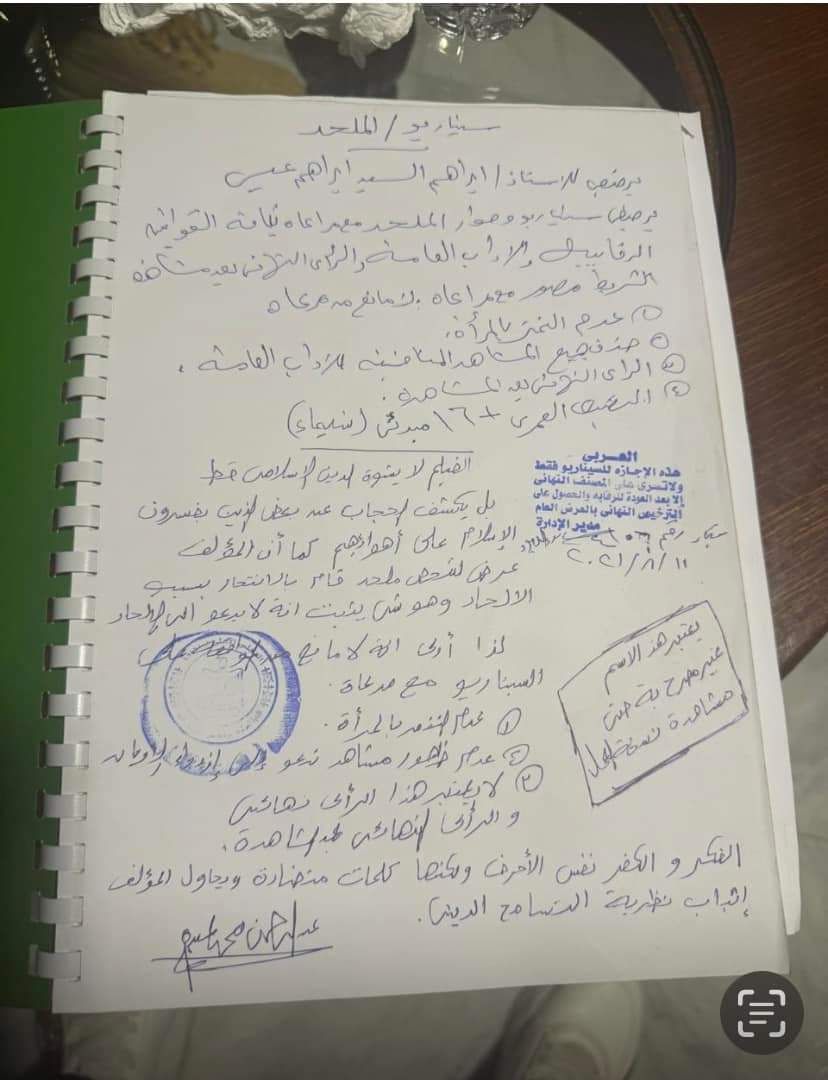 سيناريو / الملحد
يرخص للأستاذ / ابراهيم السيد ابراهيم عيسى
يرخص سيناريو وحوار الملحد مع مراعاة كافة القوانين
الرقابية والآداب العامة والرأى النهائى بعد مشاهدة
الشريط مصور مع مراعاة
١ عدم التنمر بالمرأة.
٢ حذف جميع المشاهد المنافية للآداب العامة.
٣ الرأى النهائى بعد المشاهدة.
٤ التصنيف العمرى +١٦ مبدئى (سينما)
الفيلم لا يشوه الدين الإسلامى قط
بل يكشف الحجاب عن بعض الذين يفسرون
الإسلام على أهوائهم كما أن المؤلف
عرض لشخص ملحد قام بالانتحار بسبب
الالحاد وهو شئ يثبت انه لا يدعو الى الإلحاد
لذا أرى انه لا مانع من الموافقة على
السيناريو مع مرعاة.
١ عدم التنمر بالمرأة.
٢ عدم ظهور مشاهد تدعو إلى إزدراء الأديان
٣ لا يعتبر هذا الرأى نهائى
و الرأى النهائى بعد المشاهدة.
الفكر و الكفر نفس الأحرف ولكنها كلمات متضادة ويحاول المؤلف
إثبات نظرية التسامح الدينى.
عبد الرحمن محمد
العربى
هذه الإجازه للسيناريو فقط
ولاتسرى على المصنف النهائى
إلا بعد العودة للرقابه والحصول على
الترخيص النهائى بالعرض العام
مدير الإدارة
٢٠٢١/٨/١١
يعتبر هذا الاسم
غير مصرح به حتى
مشاهدة نسخة العمل